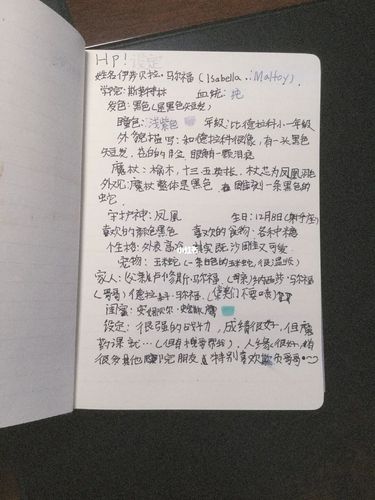 HP！设定
姓名伊莎贝拉·马尔福（Isabella.:Malfoy）
学院：斯莱特林 血统：纯
发色：黑色（是黑色短发）
瞳色：浅紫色 年级：比德拉科小一年级
外貌描写：和德拉科很像，有一头黑色
短发，苍白的脸 眼角有一颗泪痣
魔杖：榆木，十三英寸长，杖芯为凤凰羽
外观：魔杖整体是黑色 雕刻一条黑色的
蛇
守护神：凤凰 生日：12月8日（射手座）
喜欢的颜色黑色 喜欢的食物：各种糖
性格：外表高冷 其实既沙雕又可爱
宠物：玉米蛇（一条白色的玉米蛇，很温顺）
家人：父亲卢修斯·马尔福（母亲）纳西莎·马尔福
（哥哥）德拉科·马尔福
闺蜜：
设定：很强的战斗力，成绩很好，但魔
药课就…人缘很好，有
很多其他 朋友 特别喜欢欺负哥哥